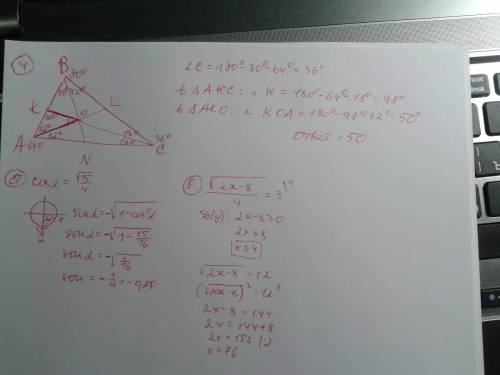 4
B
80°
40° 40°
K
L
O
32°
32°
A 64°
N
18°
18°
36°
C
∠C = 180°-80°-64° = 36°
в ΔAKC: ∠K = 180°-64°-18° = 98°
в ΔAKO: ∠KOA = 180°-98°-32° = 50°
Ответ = 50
5 cos α = √15/4
sin α = -√(1-cos²α)
sin α = -√(1-15/16)
sin α = -√(1/16)
sin α = -1/4 = -0,25
√(2x-8)/4 = 3 |·4
2x-8≥0
2x≥8
x≥4
√(2x-8) = 12
(√(2x-8))² = 12²
2x-8 = 144
2x = 144+8
2x = 152 |:2
x = 76